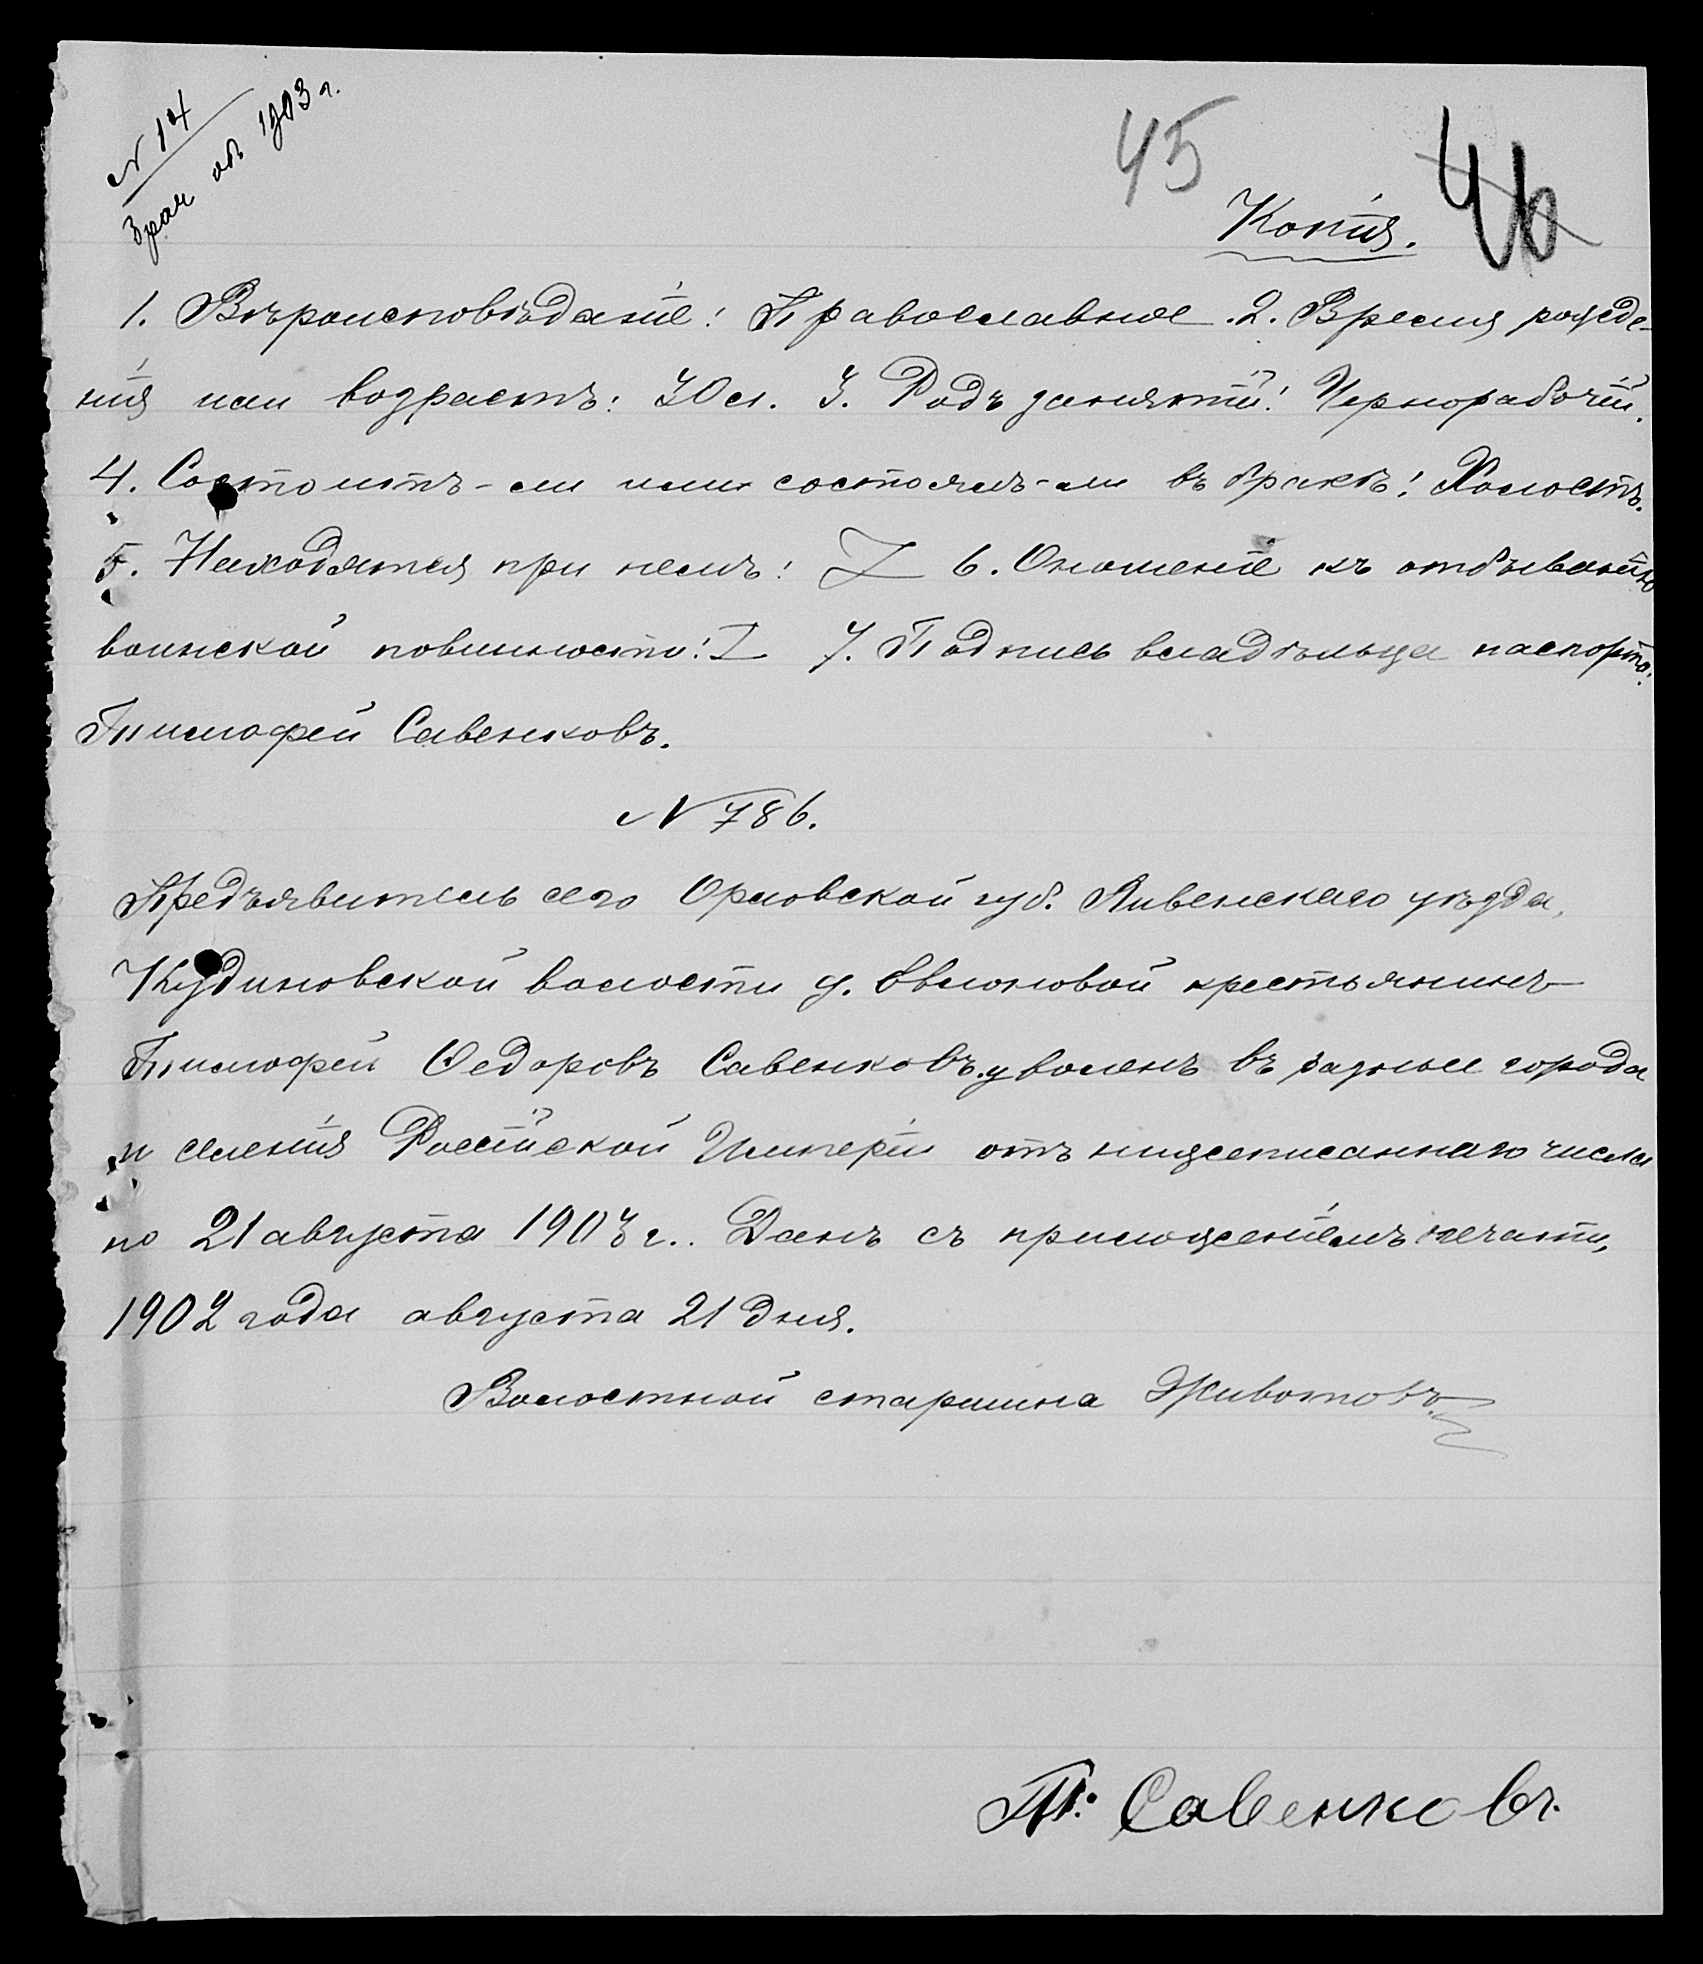 N 14
3 рач об 1903 г.
45
46
Копія.
1. Вѣроисповѣданіе: Православное. 2. Время рожде-
нія или возрастъ: 30 л. 3. Родъ занятій: Чернорабочій.
4. Состоитъ-ли или состоялъ-ли въ бракѣ: Холостъ.
5. Находятся при немъ: 6. Отношеніе къ отбыванію
воинской повинности: 7. Подпись владѣльца паспорта:
Тимофей Савенковъ.
N 786.
Предъявитель сего Орловской губ. Ливенскаго уѣзда,
Кудиновской волости д. крестьянинъ
Тимофей Ѳедоровъ Савенковъ уволенъ въ разные города
и селенія Россійской Имперіи отъ нижеписаннаго числа
по 21 августа 1903 г.. Данъ съ приложеніемъ печати,
1902 года августа 21 дня.
Волостной старшина Животовъ
Т. Савенковъ.